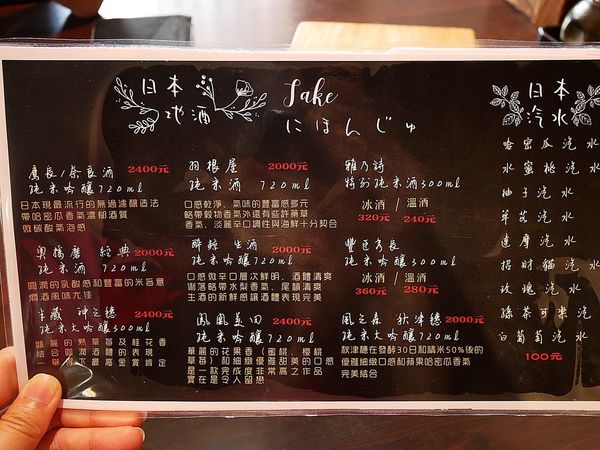 日本地酒
Sake
にほんじゅ
廣長/奈良酒 2400元
純米吟釀720ml
日本現最流行的無過濾釀造法
帶哈密瓜香氣濃郁酒質
微碳酸氣泡感
奧播磨 經典 2000元
純米酒 720ml
圓潤的乳酸感和豐富的米旨意
燗酒風味尤佳
半藏 神之穗 2400元
純米大吟釀720ml
羽根屋 2000元
純米酒 720ml
口感乾淨、氣味的豐富感多元
略帶穀物香氣外還有些許藥草
香氣、淡麗辛口調性與海鮮十分契合
醉鯨 生酒 2000元
純米吟釀720ml
口感微辛口層次鮮明、酒體清爽
俐落略帶水梨香氣、尾韻清爽
生酒的新鮮感讓酒體表現完美
鳳凰美田 2400元
純米吟釀720ml
華麗的花果香(蜜桃、櫻桃
草莓)和細緻優雅甜美的口感
是一款完成度非常高之作品
實在是令人留戀
雅乃詩
特別純米酒300ml
冰酒 / 溫酒
320元 240元
豐臣秀長
純米吟釀300ml
冰酒 / 溫酒
360元 280元
風之森 秋津穗 2000元
純米大吟釀720ml
秋津穗在發酵30日和精米50%後的
優雅細緻口感和蘋果哈密瓜香氣
完美結合
日本汽水
哈密瓜汽水
水蜜桃汽水
柚子汽水
草莓汽水
達摩汽水
招財貓汽水
玫瑰汽水
綠茶可米汽水
白葡萄汽水
100元